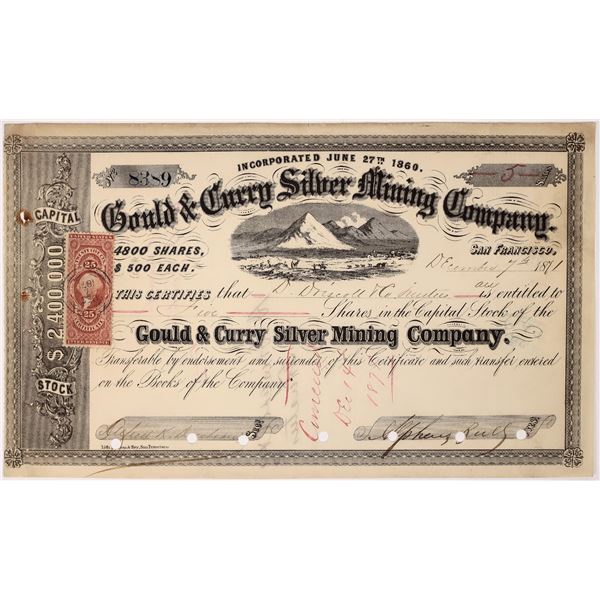 INCORPORATED JUNE 27TH 1860.
No 8389
5
Gould & Curry Silver Mining Company.
CAPITAL STOCK $2,400,000
4800 SHARES,
$ 500 EACH.
SAN FRANCISCO,
December 7th 1871
25 25
CERTIFICATE
THIS CERTIFIES that D. Driscoll & Co. Trustees is entitled to
Five Shares in the Capital Stock of the
Gould & Curry Silver Mining Company.
Transferable by endorsement and surrender of this Certificate and such transfer entered
on the Books of the Company.
Cancelled
Dec 14
187
Secy
Prest
San Francisco